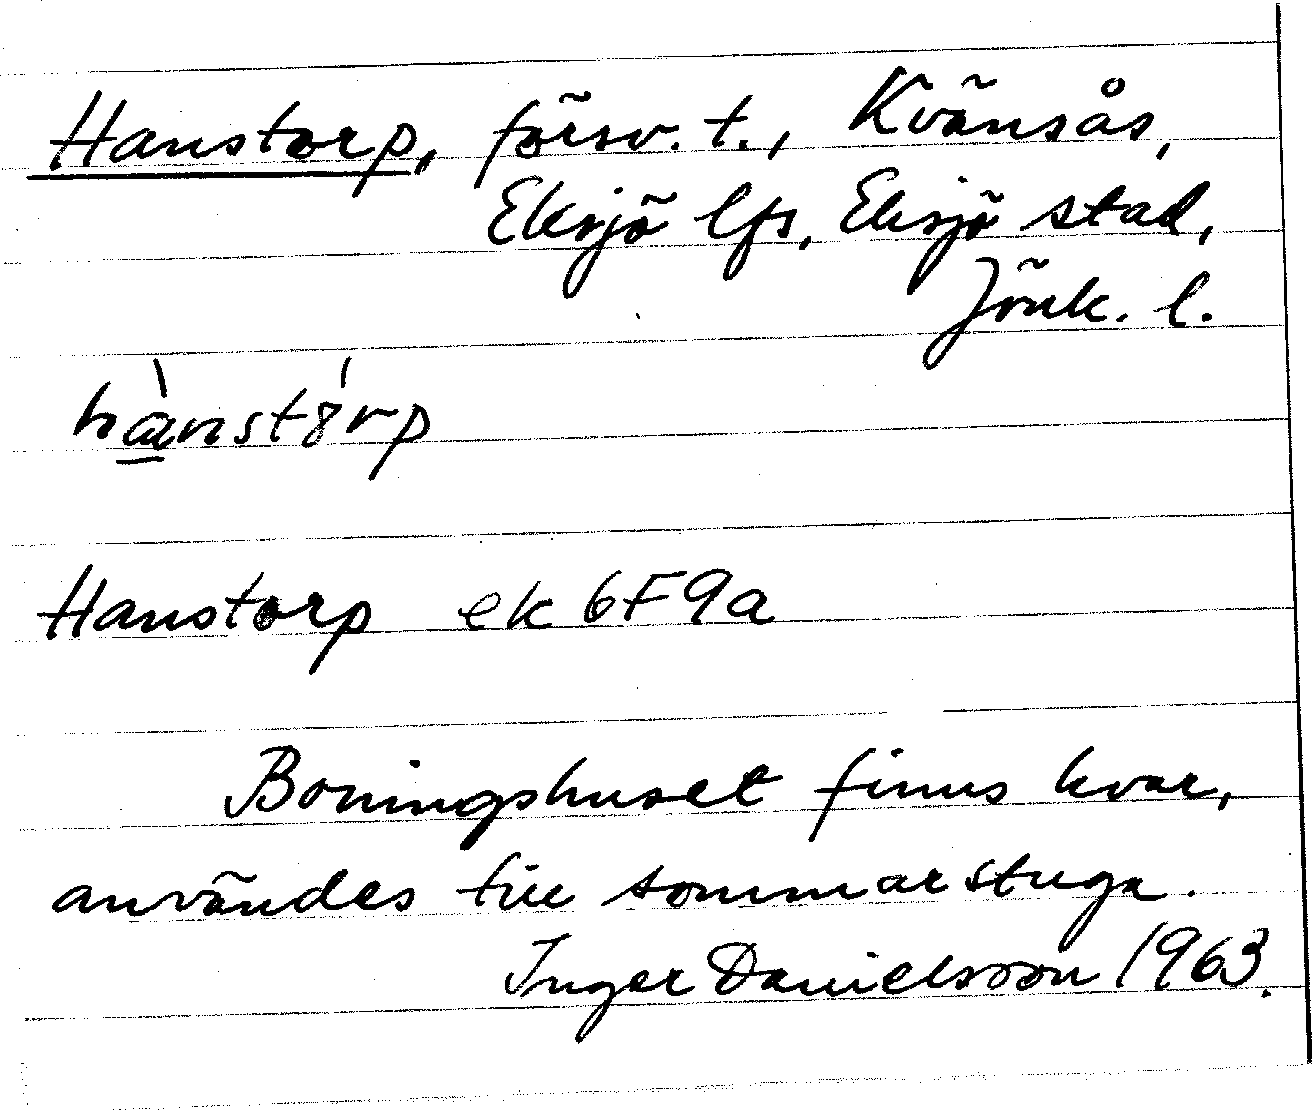 Hanstorp, försv. t., Kvänsås,
Eksjö lfs, Eksjö stad,
Jönk. l.
hànst8́rp
Hanstorp ek 6F9a
Boningshuset finns kvar,
användes till sommarstuga.
Inger Danielsson 1963.